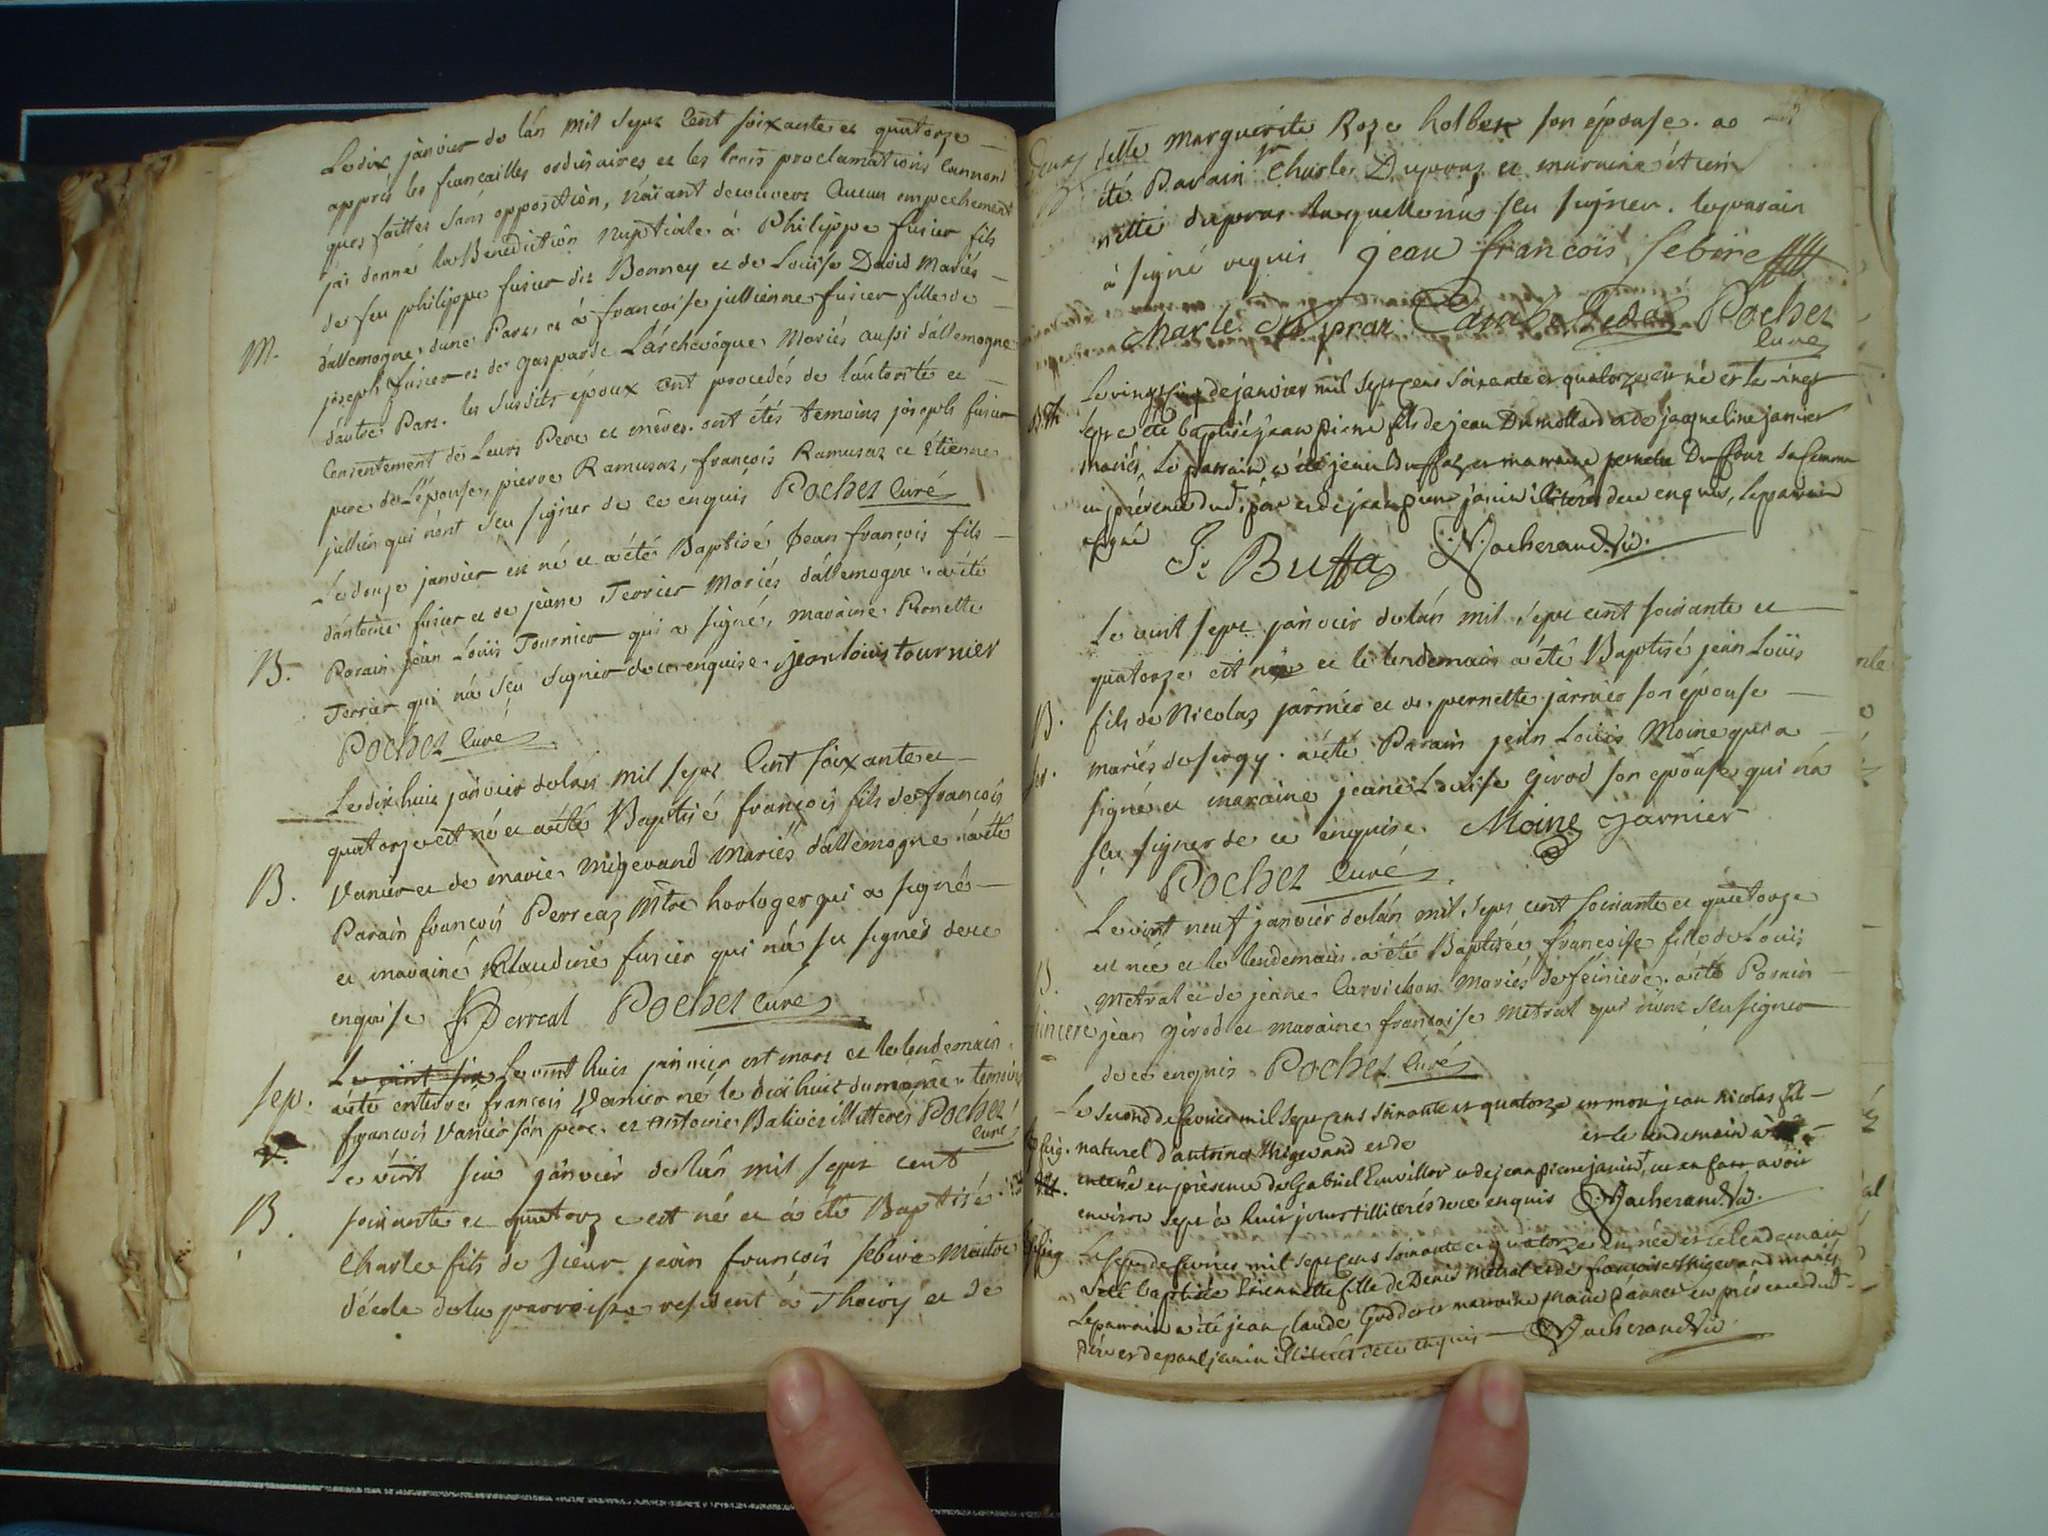 Le dix janvier de lán mil sept Cent soixante et quatorze
apprès les fiancailles ordinaires et les trois proclamations Cannoni
ques faittes sans opposition, náiant decouvert Aucun empechement
j'ai donné la Bénédiction Nuptiale à Philippe fusier fils
de feu philippe fusier dit Bonney et de Loüise David Mariés
M. dallemogne, dune Part, et à francoise jullienne fusier fille de
joseph fusier et de Gasparde Lárchevéque Mariés aussi dállemogne
dautre Part. les susdits époux ont procedés de láutorité et
Consentement de Leurs Pere et mères. ont étés temoins joseph fusier
pere de Lépouse, pierre Ramusat, francois Ramusaz et Etienne
jullien qui nónt sçu signer de ce enquis Pochet Curé
Le douze janvier est né et a été Baptisé Jean françois fils
dántoine fusier et de jeane Terrier Mariés dállemogne. a été
B. Parain jean Loüis Tournier qui a signé, maraine Pernette
Terrier qui ná sçu signer de ce enquise. jean louis tournier
Pochet Curé
Le dix huit janvier de lán mil sept Cent soixante et
quatorze est né et a été Baptisé françois fils de francois
B. Vanier et de marie Migerand Mariés dállemogne. a été
Parain françois Perreaz Mtre horloger qui a signé
et maraine Claudine fusier qui ná sçu signer de ce
enquise f Perreal Pochet Curé
Le vint six Le vint huit janvier est mort et le lendemain
sep. a été enterré francois Vanier né le dix huit du même. temoins
françois Vanier son pere et Antoine Balivet illitteres Pochet
curé
Le vint six janvier de lán mil sept cent
B. soixante et quatorze est né et a été Baptisé
Charle fils de Sieur jean françois Sebire Maitre
décole de la parroisse resident à Thoiry et de
delle Marguerite Roze holbek son épouse. ao
été Parain sr Charle Dupraz et maraine étien
nette dupraz laquelle ná sçu signer. le parain
à signé requis jean francois Sebire
Charle Dupraz Pochet
Curé
Le vingt cinq de janvier mil sept cens soixante et quatorze est né et le vingt
sept a été baptisé jean pierre fils de jean Dumollard et de jacqueline janier
mariés, Le parrain a été jean Buffaz et marraine pernete Duffour sa femme
en présence dud. père et de jean pierre janin illiterés de ce enquis, le parrain
a signé J. Buffa Vacherand Vic.
Le vint sept janvier de lán mil sept cent soixante et
quatorze est né et le lendemain a été Baptisé jean Loüis
B. fils de Nicolaz jarnier et de pernette jarnier son épouse
mariés de sergy. a été Parain jean Loüis Moine qui a
signé et maraine jeane Loüise Girod son épouse qui ná
sçu signer de ce enquise. Moine Jarnier
Pochet Curé
Le vint neuf janvier de lán mil sept cent soixante et quatorze
est née et le lendemain a été Baptisée francoise fille de Loüis
Metral et de jeane Carrichon Mariés de feiniere. a été Parain
jean Girod et Maraine francoise Metral qui nónt sçu signer
de ce enquis Pochet Curé
Le second de fevrier mil sept cens soixante et quatorze est mort jean nicolas fils
naturel d'antoine Migerand et de et le lendemain a été
enterré en présence de Gabriel et de jean pierre janin, cet enfant avoit
environ sept à huit jours illiterés de ce enquis Vacherand Vic.
Le de fevrier mil sept cens soixante et quatorze est née et le lendemain
a été baptisée Etiennette fille de Denis Metral et de francoise Migerand mariés
Le parrain a été jean Claude Goddet et marraine en présence dud.
père et de paul janin illiterés de ce enquis Vacherand Vic